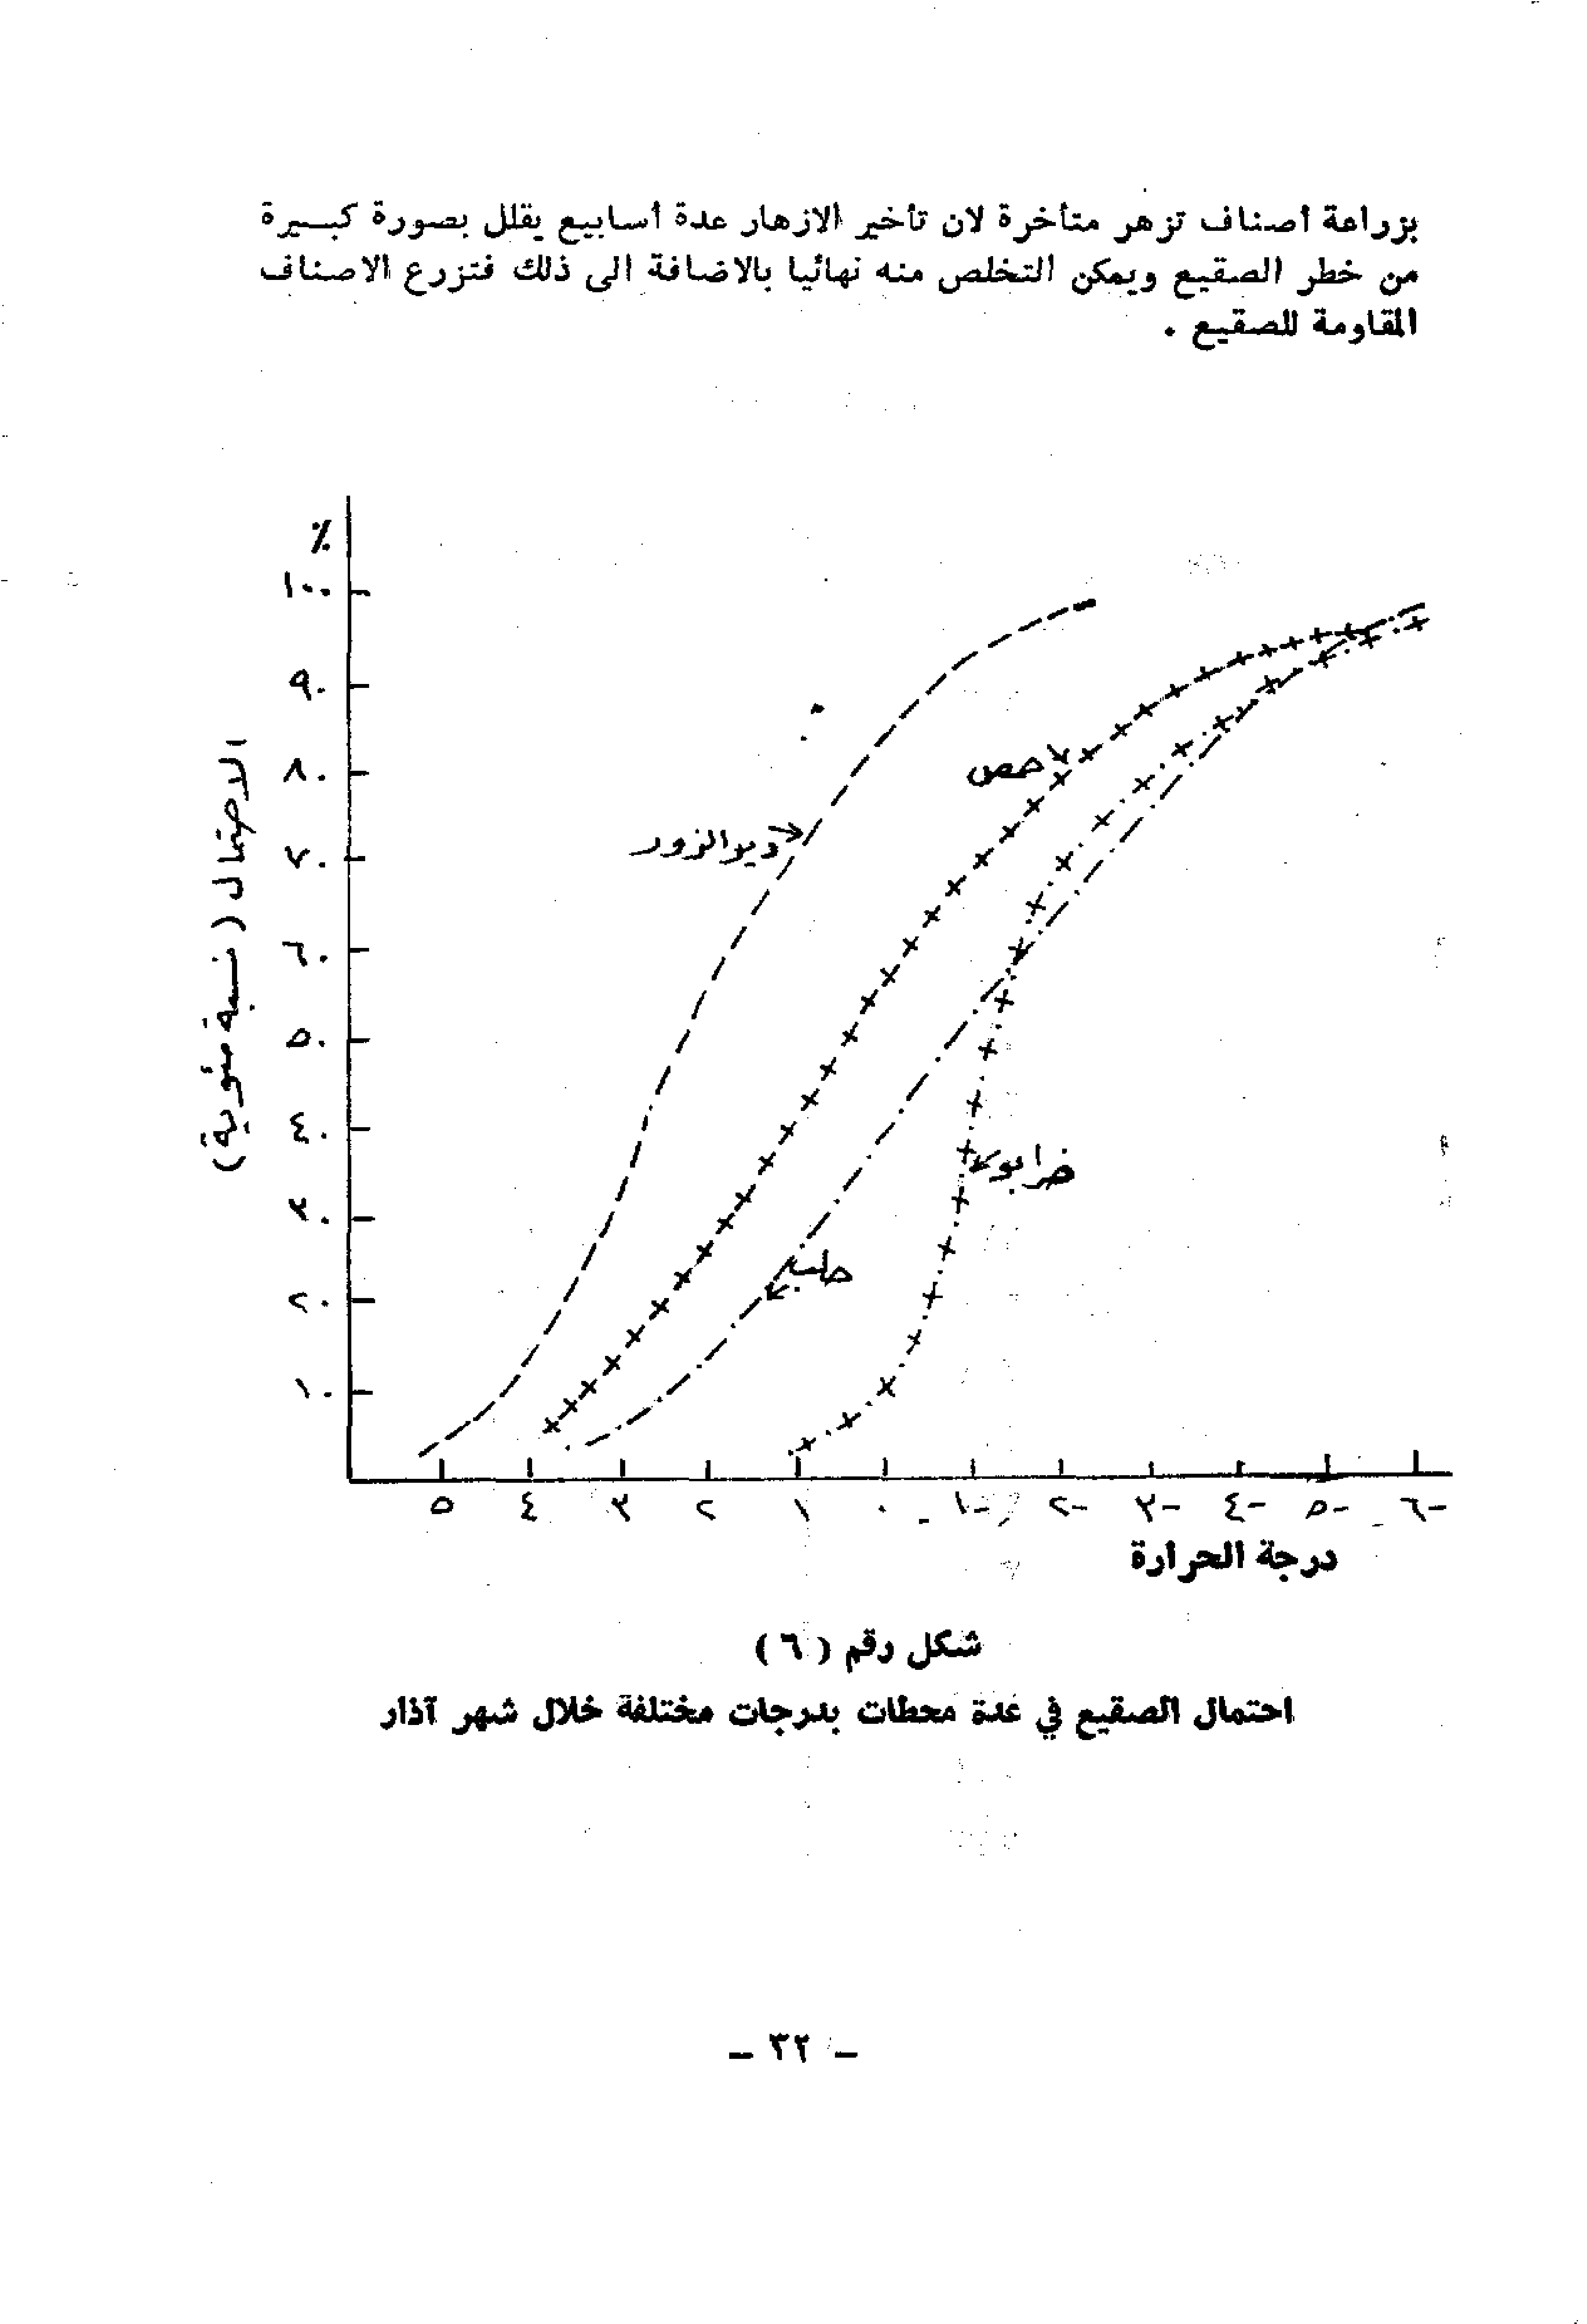 بزراعة أصناف تزهر متأخرة لان تأخير الازهار عدة أسابيع يقلل بصورة كبـــيرة
من خطر الصقيع ويمكن التخلص منه نهائيا بالاضافة الى ذلك فتزرع الاصناف
المقاومة للصقيع .
٪
١٠٠
٩٠
٨٠
٧٠
٦٠
٥٠
٤٠
٣٠
٢٠
١٠
الاحتمال (نسبة مئوية)
ديرالزور
حمص
خرابو
حلب
٥ ٤ ٣ ٢ ١ ٠ ١- ٢- ٣- ٤- ٥- ٦-
درجة الحرارة
شكل رقم (٦)
احتمال الصقيع في عدة محطات بدرجات مختلفة خلال شهر آذار
- ٣٢ -